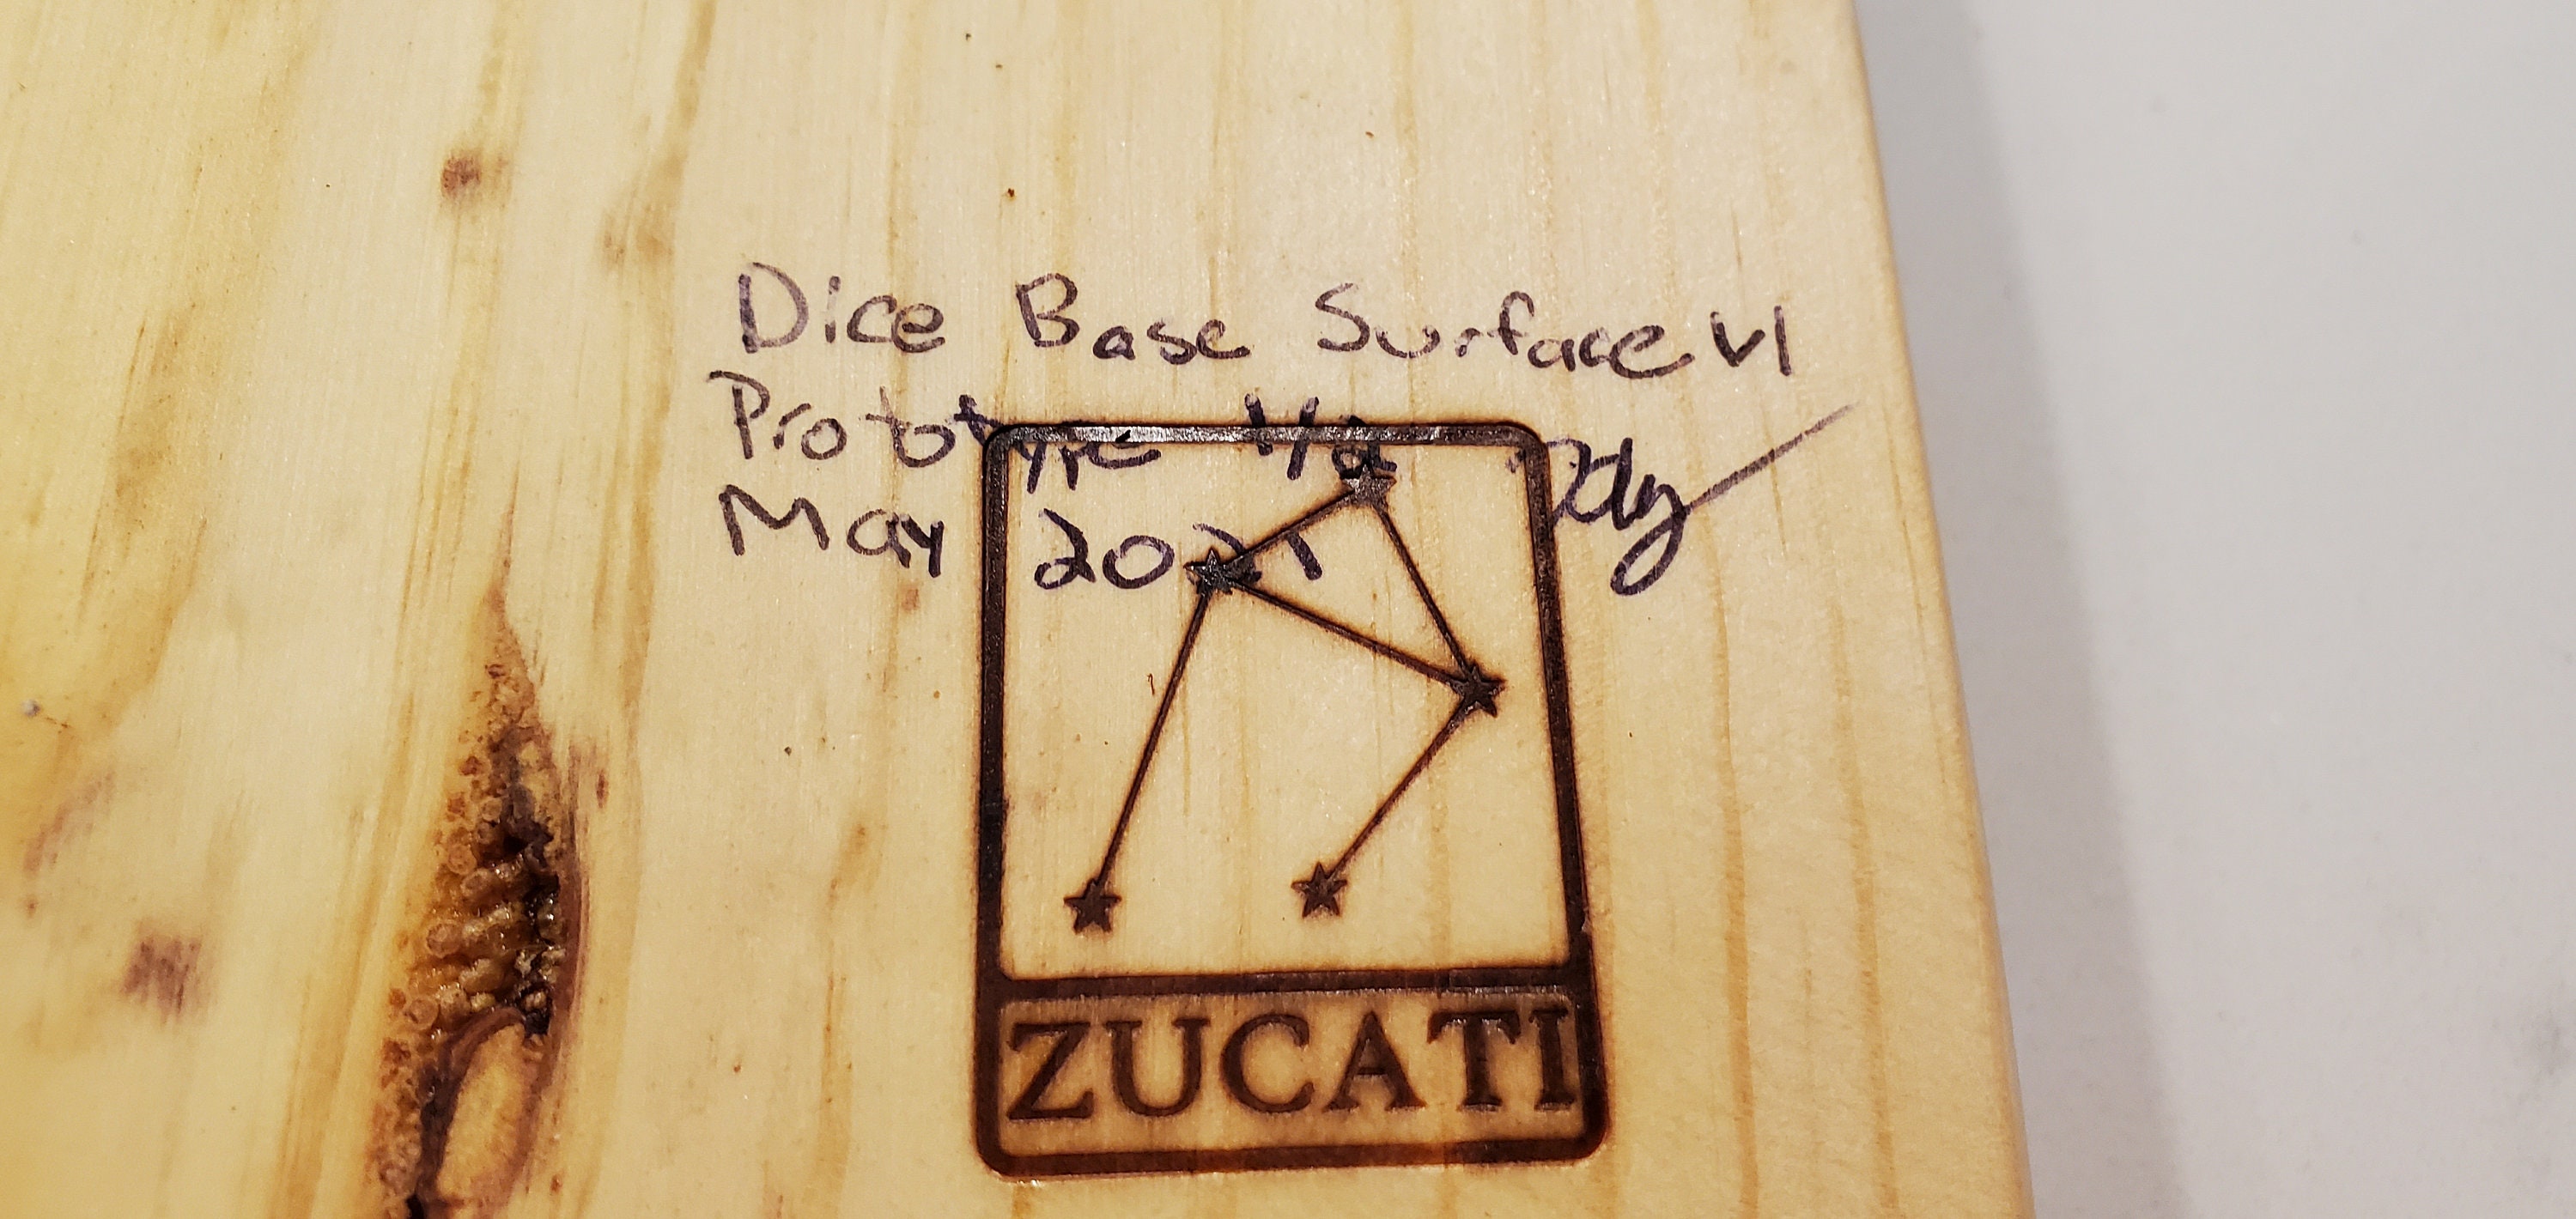 Dice Base Surface V1
Prototype 1/2
May 2021
ZUCATI